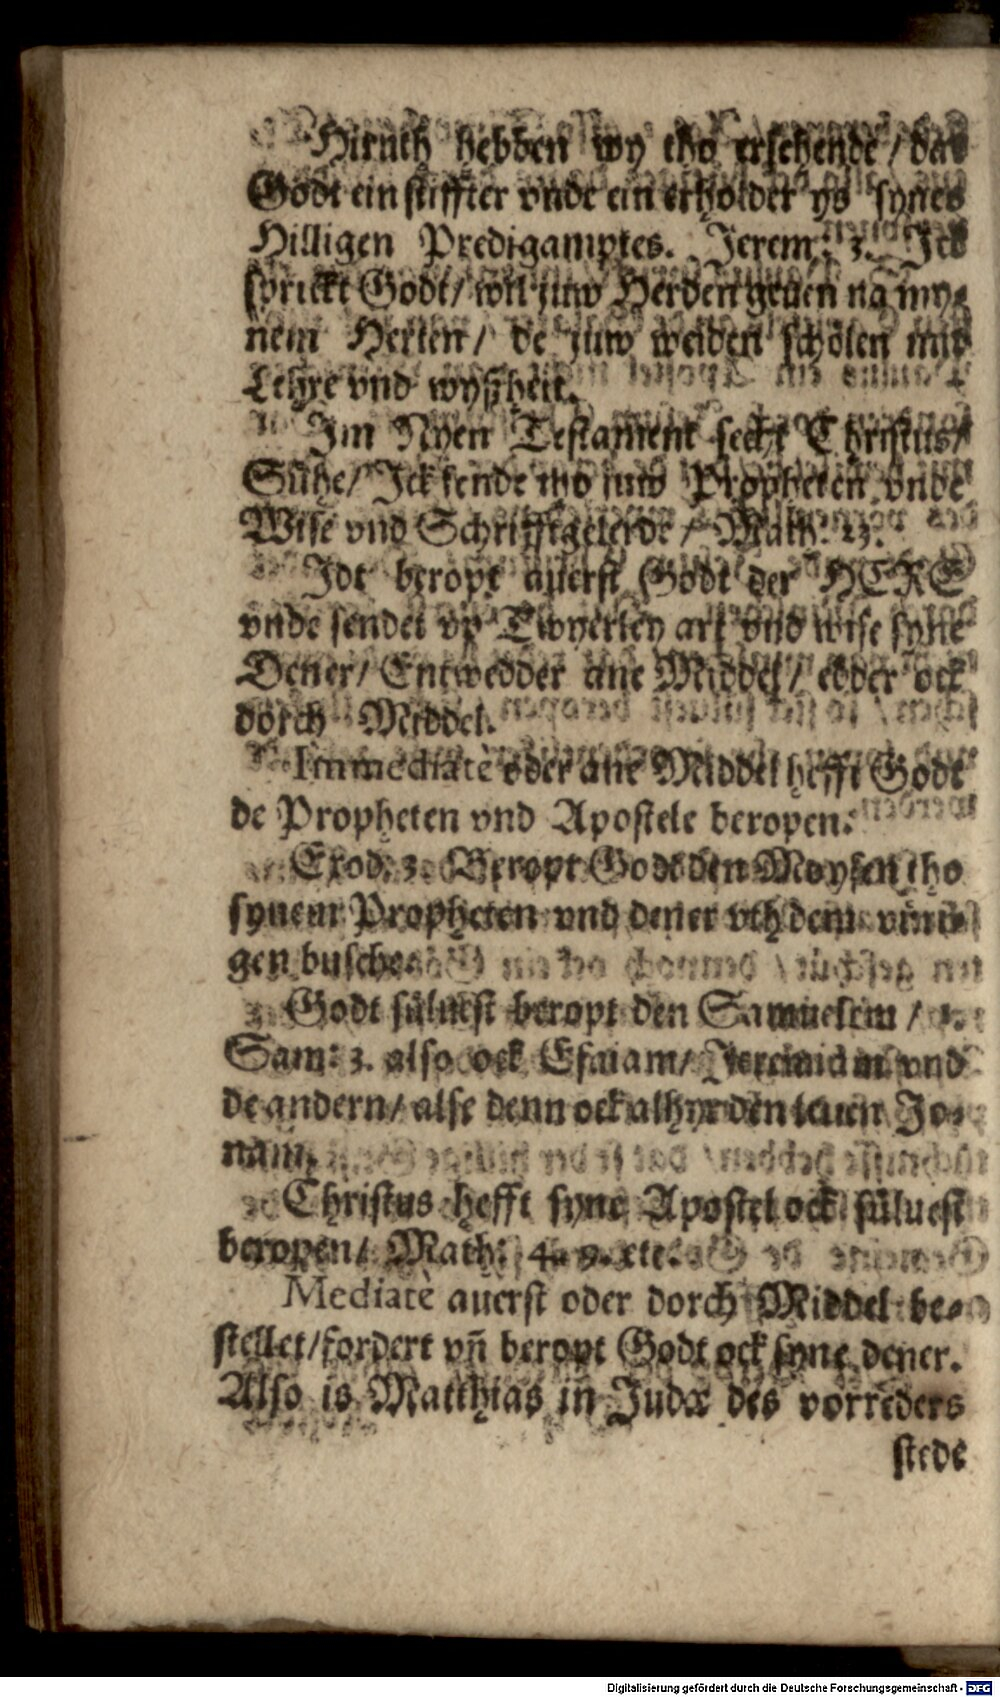 Hiruth hebben wy tho ersehende / dat
Godt ein stiffter vnde ein erholder ys synes
Hilligen Predigamptes. Jerem: 3. Ick
sprickt Godt / wil juw Herden geuen na my⸗
nem Herten / de juw weiden schölen mit
Lehre vnd wyßheit.
Im Nyen Testament secht Christus /
Sühe / Ick sende tho juw Propheten vnde
Wise vnd Schrifftgelerde / Math. 23.
Idt beropt auerst Godt der HERE
vnde sendet vp Twyerley art vnd wise syne
Dener / Entwedder ane Middel / edder ock
dorch Middel.
Immediatè oder ane Middel hefft Godt
de Propheten vnd Apostele beropen.
Exod. 3. Beropt Godt den Moysen tho
synem Propheten vnd dener vth dem vüri⸗
gen busche.
Godt süluest beropt den Samuelem / 1.
Sam: 3. also ock Esaiam / Jeremiam vnd
de andern / alse denn ock alhyr den leuen Jo⸗
nam.
Christus hefft syne Apostel ock süluest
beropen / Math: 4. 9. etc.
Mediatè auerst oder dorch Middel be⸗
stellet / fordert vn̄ beropt Godt ock syne dener.
Also is Matthias in Judæ des vorreders
stede
Digitalisierung gefördert durch die Deutsche Forschungsgemeinschaft - DFG